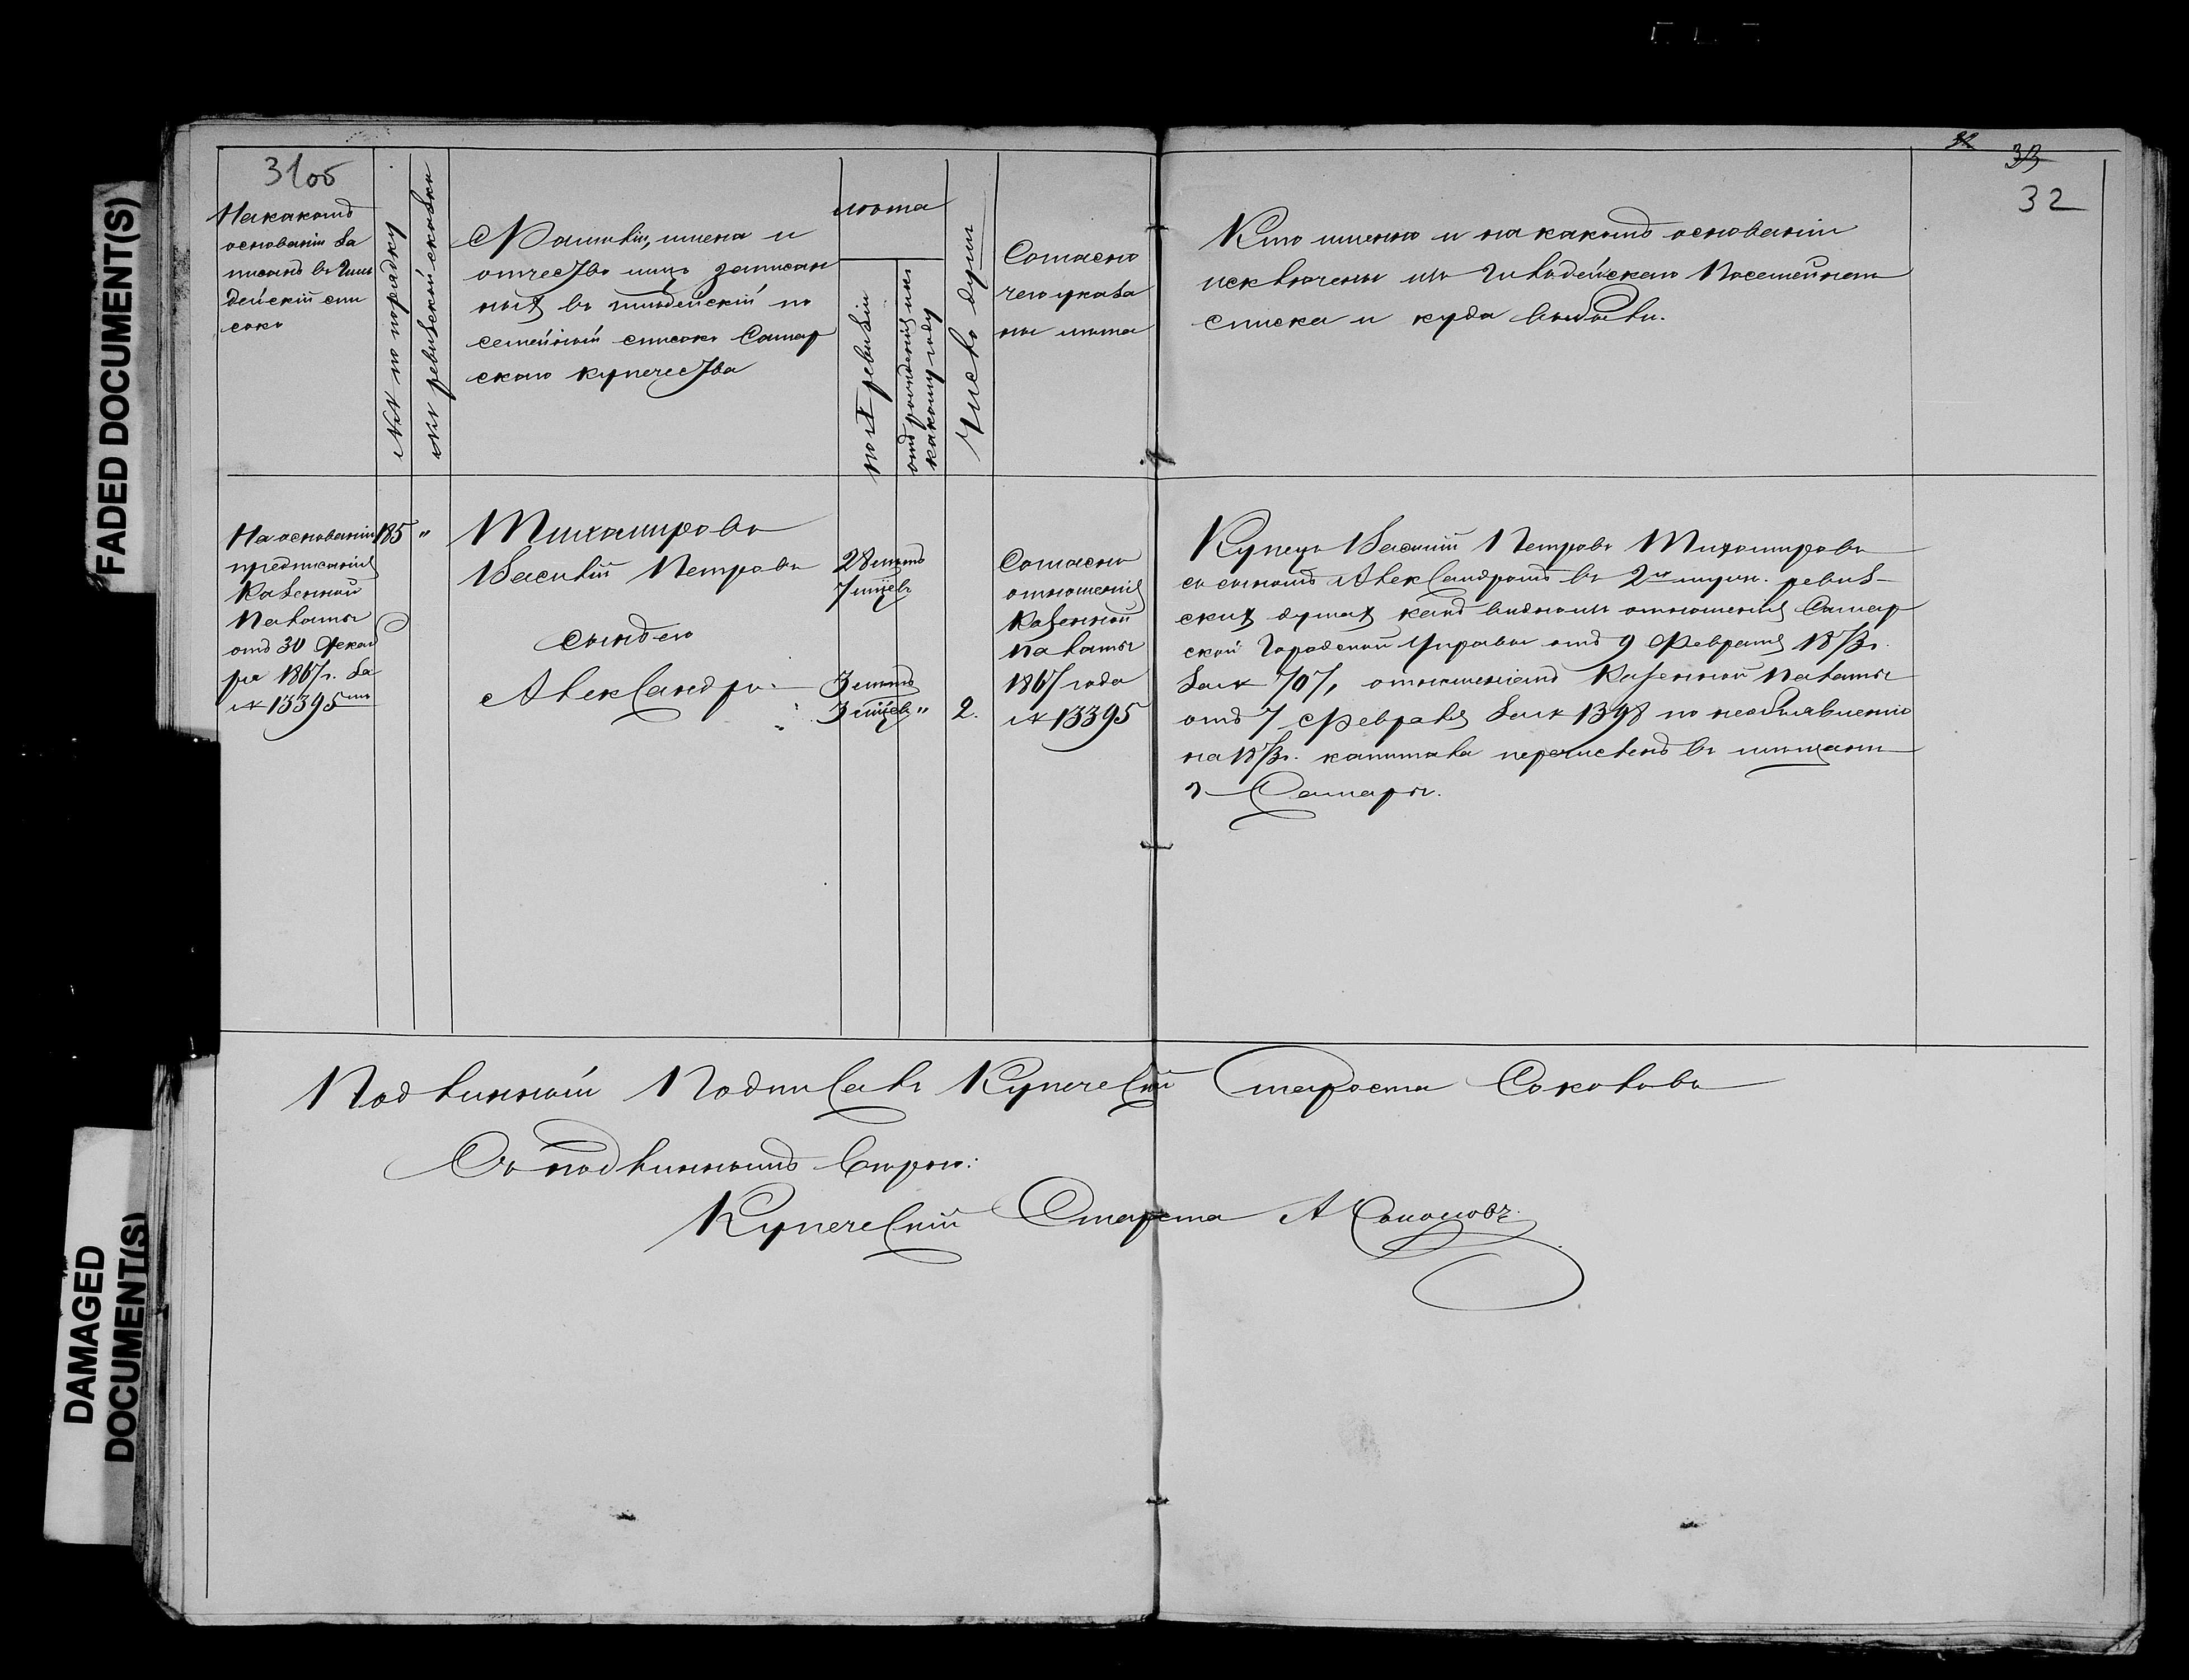 FADED DOCUMENT(S)
DAMAGED
DOCUMENT(S)
31об
На какомъ
основаніи за
писанъ въ Гиль
дейскій спи
сокъ
№№ по порядку
№№ ревизской сказки
Фамиліи, имена и
отчество лицъ записан
ныхъ въ гильдейскій по
семейный списокъ Самар
скаго купечества
лѣта
по X ревизіи
отъ рожденія или
какому году
Число душъ
Согласно
чего указа
ны лѣта
Кто именно и на какомъ основаніи
исключены изъ Гильдейскаго Посемейнаго
списка и куда выбыли.
32
33
32
На основаніи
предписанія
Казенной
Палаты
отъ 30 Декаб
ря 1867 г. за
№ 13395мъ
185 "
Тихомировъ
Василій Петровъ
28 лѣтъ
7 мѣцевъ
сынъ его
Александръ
3 лѣтъ
3 мѣцевъ " 2.
Согласно
отношенія
Казенной
Палаты
1867 года
№ 13395
Купецъ Василій Петровъ Тихомировъ
съ сыномъ Александромъ въ 2хъ мущин. ревиз-
скихъ душахъ какъ видно изъ отношенія Самар
ской Городской Управы отъ 9 Февраля 1873 г.
за № 707, отношеніемъ Казенной Палаты
отъ 7 Февраля за № 1398 по необъявленію
на 1873 г. капитала перечисленъ въ мѣщане
г Самары.
Подлинный Подписалъ Купеческій Староста Соколовъ
Съ подлиннымъ вѣрно:
Купеческій Староста А Соколовъ